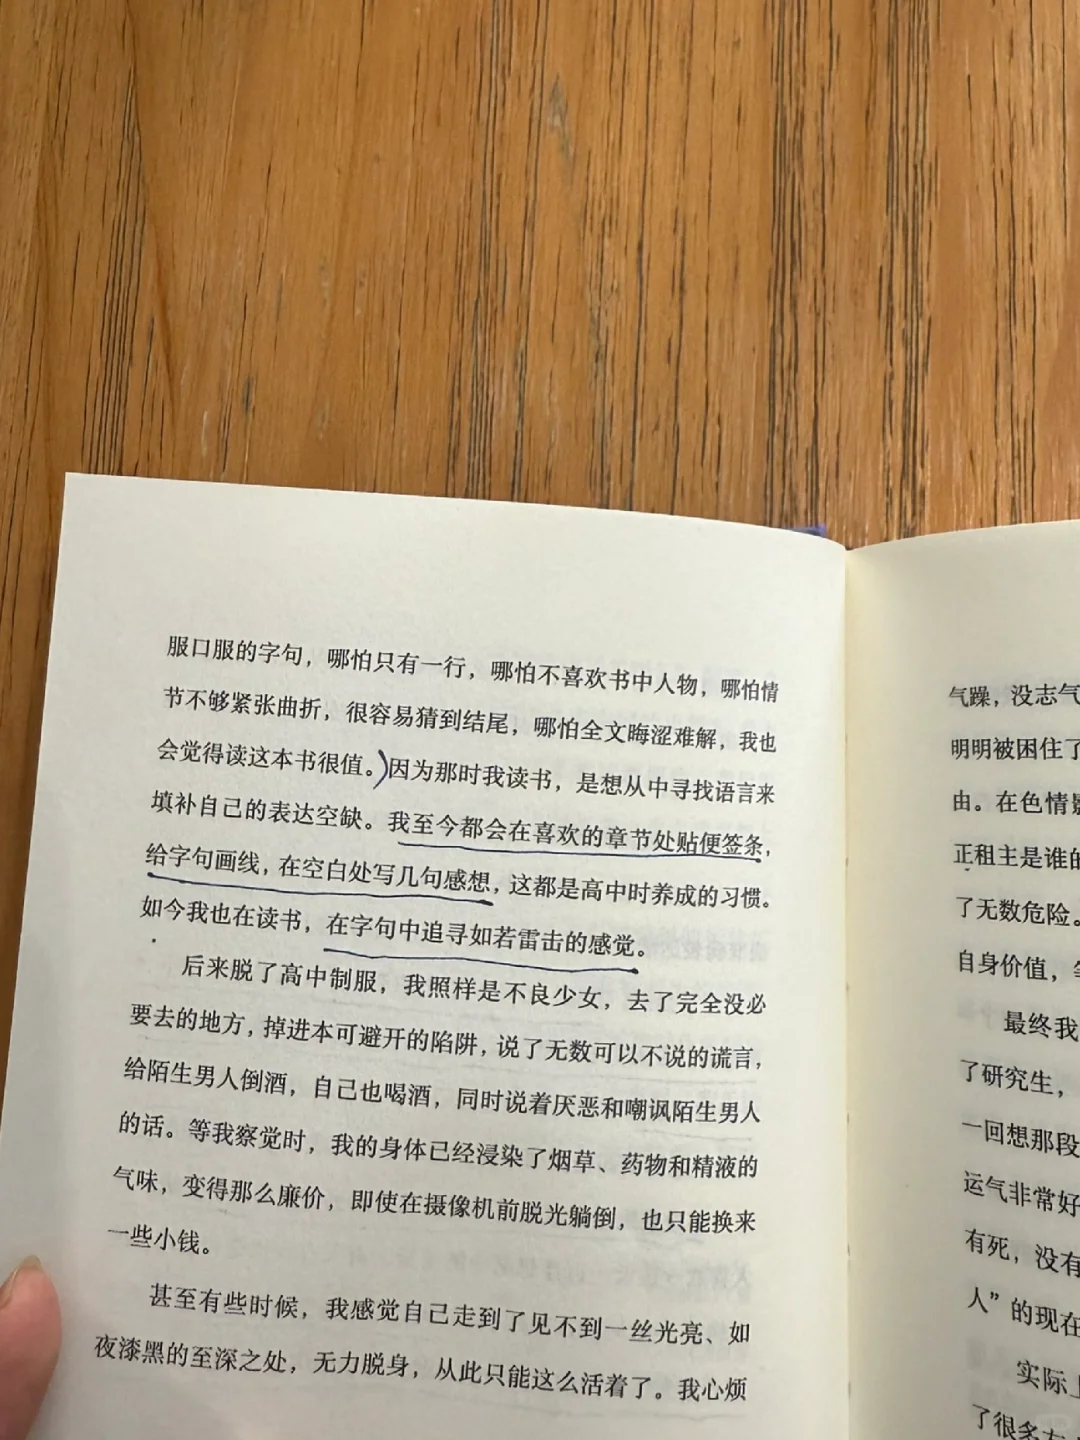 服口服的字句，哪怕只有一行，哪怕不喜欢书中人物，哪怕情
节不够紧张曲折，很容易猜到结尾，哪怕全文晦涩难解，我也
会觉得读这本书很值。）因为那时我读书，是想从中寻找语言来
填补自己的表达空缺。我至今都会在喜欢的章节处贴便签条，
给字句画线，在空白处写几句感想，这都是高中时养成的习惯。
如今我也在读书，在字句中追寻如若雷击的感觉。
后来脱了高中制服，我照样是不良少女，去了完全没必
要去的地方，掉进本可避开的陷阱，说了无数可以不说的谎言，
给陌生男人倒酒，自己也喝酒，同时说着厌恶和嘲讽陌生男人
的话。等我察觉时，我的身体已经浸染了烟草、药物和精液的
气味，变得那么廉价，即使在摄像机前脱光躺倒，也只能换来
一些小钱。
甚至有些时候，我感觉自己走到了见不到一丝光亮、如
夜漆黑的至深之处，无力脱身，从此只能这么活着了。我心烦
气躁，没志气
明明被困住了
由。在色情影
正租主是谁的
了无数危险。
自身价值，
最终我
了研究生，
一回想那段
运气非常好
有死，没有
人”的现在
实际上
了很多